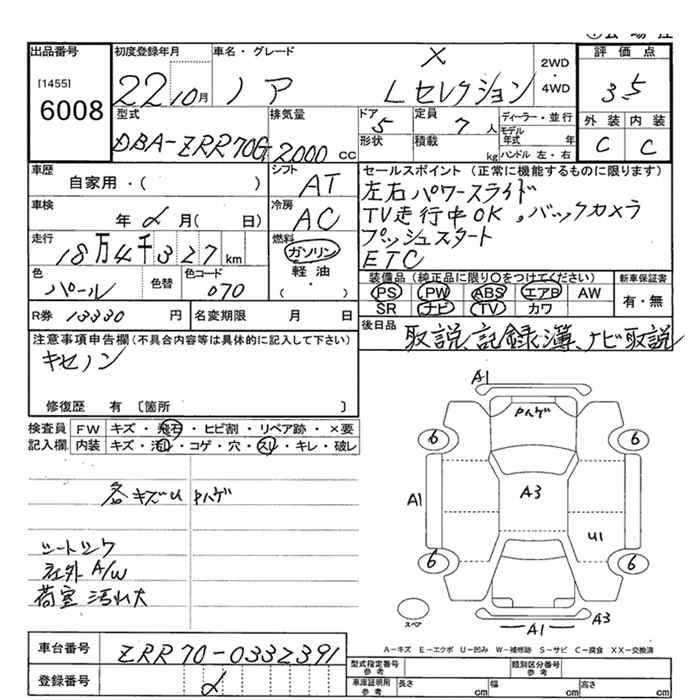 出品番号 初度登録年月 車名・グレード 2WD・4WD 評価点
[1455]
6008 22 10月 ノア X Lセレクション 3.5
型式 排気量 ドア 定員 ディーラー・並行 外装 内装
DBA-ZRR70G 2000 CC 5 7人 モデル年式 年 C C
形状 積載 kg ハンドル 左・右
車歴 シフト セールスポイント(正常に機能するものに限ります)
自家用・( ) AT 左右パワースライド
車検 冷房 TV走行中OK, バックカメラ
年 月( 日) AC プッシュスタート
走行 燃料 ETC
18万4千327km ガソリン
軽油
・( )
色 色替 色コード 装備品(純正品に限り○をつけてください) 新車保証書
パール 070 PS PW ABS エアB AW 有・無
SR ナビ TV カワ
R券 13330 円 名変期限 月 日 後日品 取説、記録簿、ナビ取説
注意事項申告欄(不具合内容等は具体的に記入して下さい)
キセノン
修復歴 有 [箇所 ]
検査員 FW キズ・飛石・ヒビ割・リペア跡・×要
記入欄 内装 キズ・汚れ・コゲ・穴・スレ・キレ・破レ
各キズU Pハゲ
シートシワ
社外A/W
荷室汚れ大
A1
Pハゲ
6 6
A1 A3 U1
6 6
スペア A1 A3
A-キズ E-エクボ U-凹み W-補修跡 S-サビ C-腐食 XX-交換済
車台番号 ZRR70-0332391
登録番号
型式指定番号 参考 類別区分番号 参考
車庫証明用 参考 長さ cm 幅 cm 高さ cm